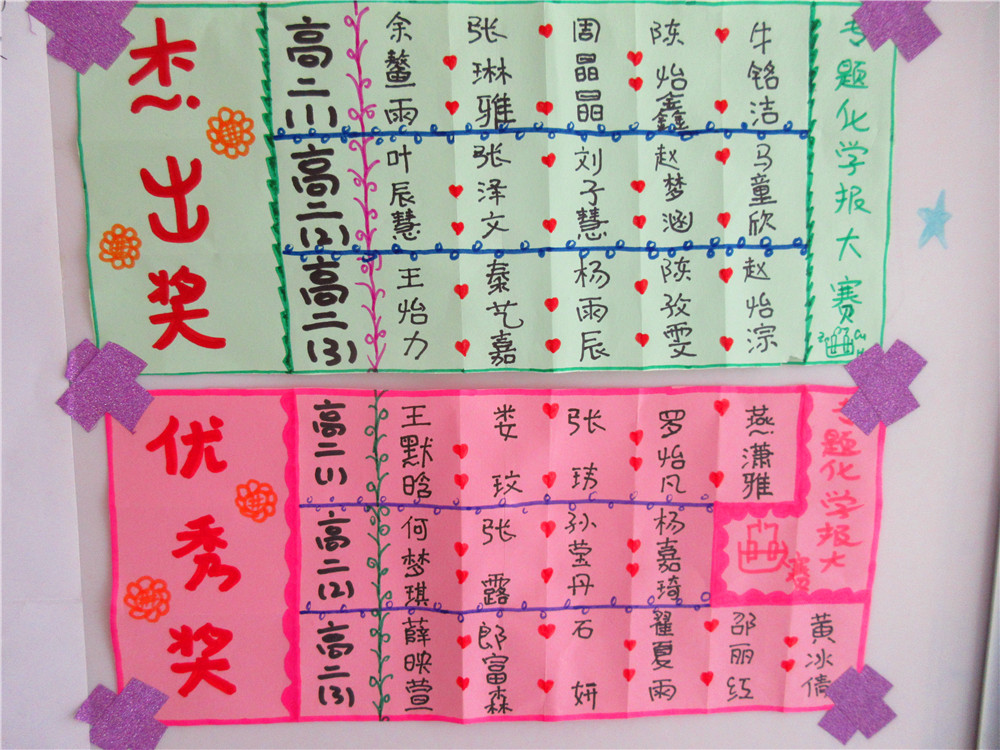 杰出奖
高二(1)
余鳌雨
张琳雅
周晶晶
陈怡鑫
牛铭洁
高二(2)
叶辰慧
张泽文
刘予慧
赵梦涵
马童欣
高二(3)
王怡力
秦艺嘉
杨雨辰
陈孜雯
赵怡淙
专题化学报大赛
优秀奖
高二(1)
王默晗
娄玟
张玮
罗怡凡
燕潇雅
高二(2)
何梦琪
张露
孙莹丹
杨嘉琦
高二(3)
薛映萱
郎富森
石妍
翟夏雨
邵丽红
黄冰倩
专题化学报大赛